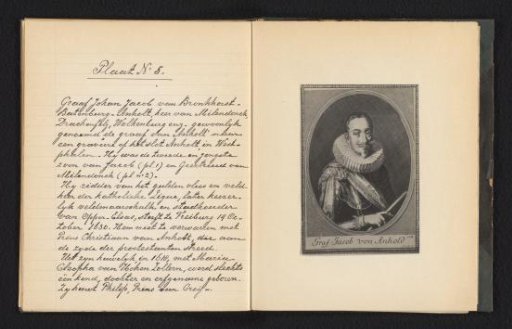 Plaat No 5.
Graaf Johan Jacob van Bronkhorst-
Batenburg-Anholt, heer van Milendonck
Drachenfels, Wolkenburg enz. gewoonlijk
genaamd de graaf van Anholt naar
een graveerd of het slot Anholt in West-
phalen. Hij was de tweede en jongste
zoon van Jacob (pl 1) en Geertruid van
Milendonck (pl. n: 2).
Hij ridder van het gulden vlies en veld-
heer der katholieke Ligue, later keizer-
lijk veldmaarschalk, en stadhouder
van Opper-Elzas, sterft te Freiburg 19 Oc-
tober 1630. Men moet te verwarren met
Prins Christiaan van Anhalt, die aan
de zijde der protestanten streed.
Uit zijn huwelijk in 1618, met Maria
Josepha van Hohen Zollern, werd slechts
één kind, dochter en erfgename geboren.
Zij huwt Philip, Prins van Croy.
Graf Jacob von Anhold